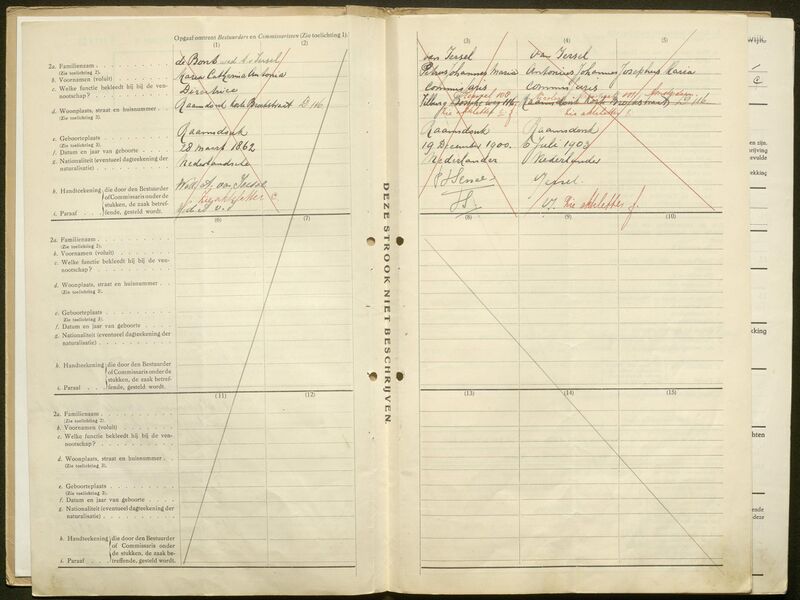 Opgaaf omtrent Bestuurders en Commissarissen (Zie toelichting 1).
(1) (2)
2a. Familienaam
(Zie toelichting 2).
b. Voornamen (voluit)
c. Welke functie bekleedt hij bij de ven-
nootschap?
d. Woonplaats, straat en huisnummer
(Zie toelichting 3).
e. Geboorteplaats
(Zie toelichting 3).
f. Datum en jaar van geboorte
g. Nationaliteit (eventueel dagteekening der
naturalisatie)
h. Handteekening die door den Bestuurder
of Commissaris onder de
stukken, de zaak betref-
i. Paraaf fende, gesteld wordt.
de Bont wed. A. v. Iersel
Maria Catharina Antonia
Directrice
Raamsdonk Kerk Broekstraat D 116
Raamsdonk
28 Maart 1862
Nederlandsche
Wed. A. van Iersel
Zie akteletter C.
(6) (7)
2a. Familienaam
(Zie toelichting 2).
b. Voornamen (voluit)
c. Welke functie bekleedt hij bij de ven-
nootschap?
d. Woonplaats, straat en huisnummer
(Zie toelichting 3).
e. Geboorteplaats
(Zie toelichting 3).
f. Datum en jaar van geboorte
g. Nationaliteit (eventueel dagteekening der
naturalisatie)
h. Handteekening die door den Bestuurder
of Commissaris onder de
stukken, de zaak betref-
i. Paraaf fende, gesteld wordt.
(11) (12)
2a. Familienaam
(Zie toelichting 2).
b. Voornamen (voluit)
c. Welke functie bekleedt hij bij de ven-
nootschap?
d. Woonplaats, straat en huisnummer
(Zie toelichting 3).
e. Geboorteplaats
(Zie toelichting 3).
f. Datum en jaar van geboorte
g. Nationaliteit (eventueel dagteekening der
naturalisatie)
h. Handteekening die door den Bestuurder
of Commissaris onder
de stukken, de zaak be-
i. Paraaf treffende, gesteld wordt.
DEZE STROOK NIET BESCHRIJVEN
(3) (4) (5)
van Iersel van Iersel
Petrus Johannes Maria Antonius Johannes Josephus Maria
Commissaris Commissaris
Tilburg
Zie akteletter f. Zie akteletter f.
Raamsdonk Raamsdonk
19 December 1900. 6 Juli 1903
Nederlander Nederlander
Zie aktelettes f.
(8) (9) (10)
(13) (14) (15)
wijk.
C